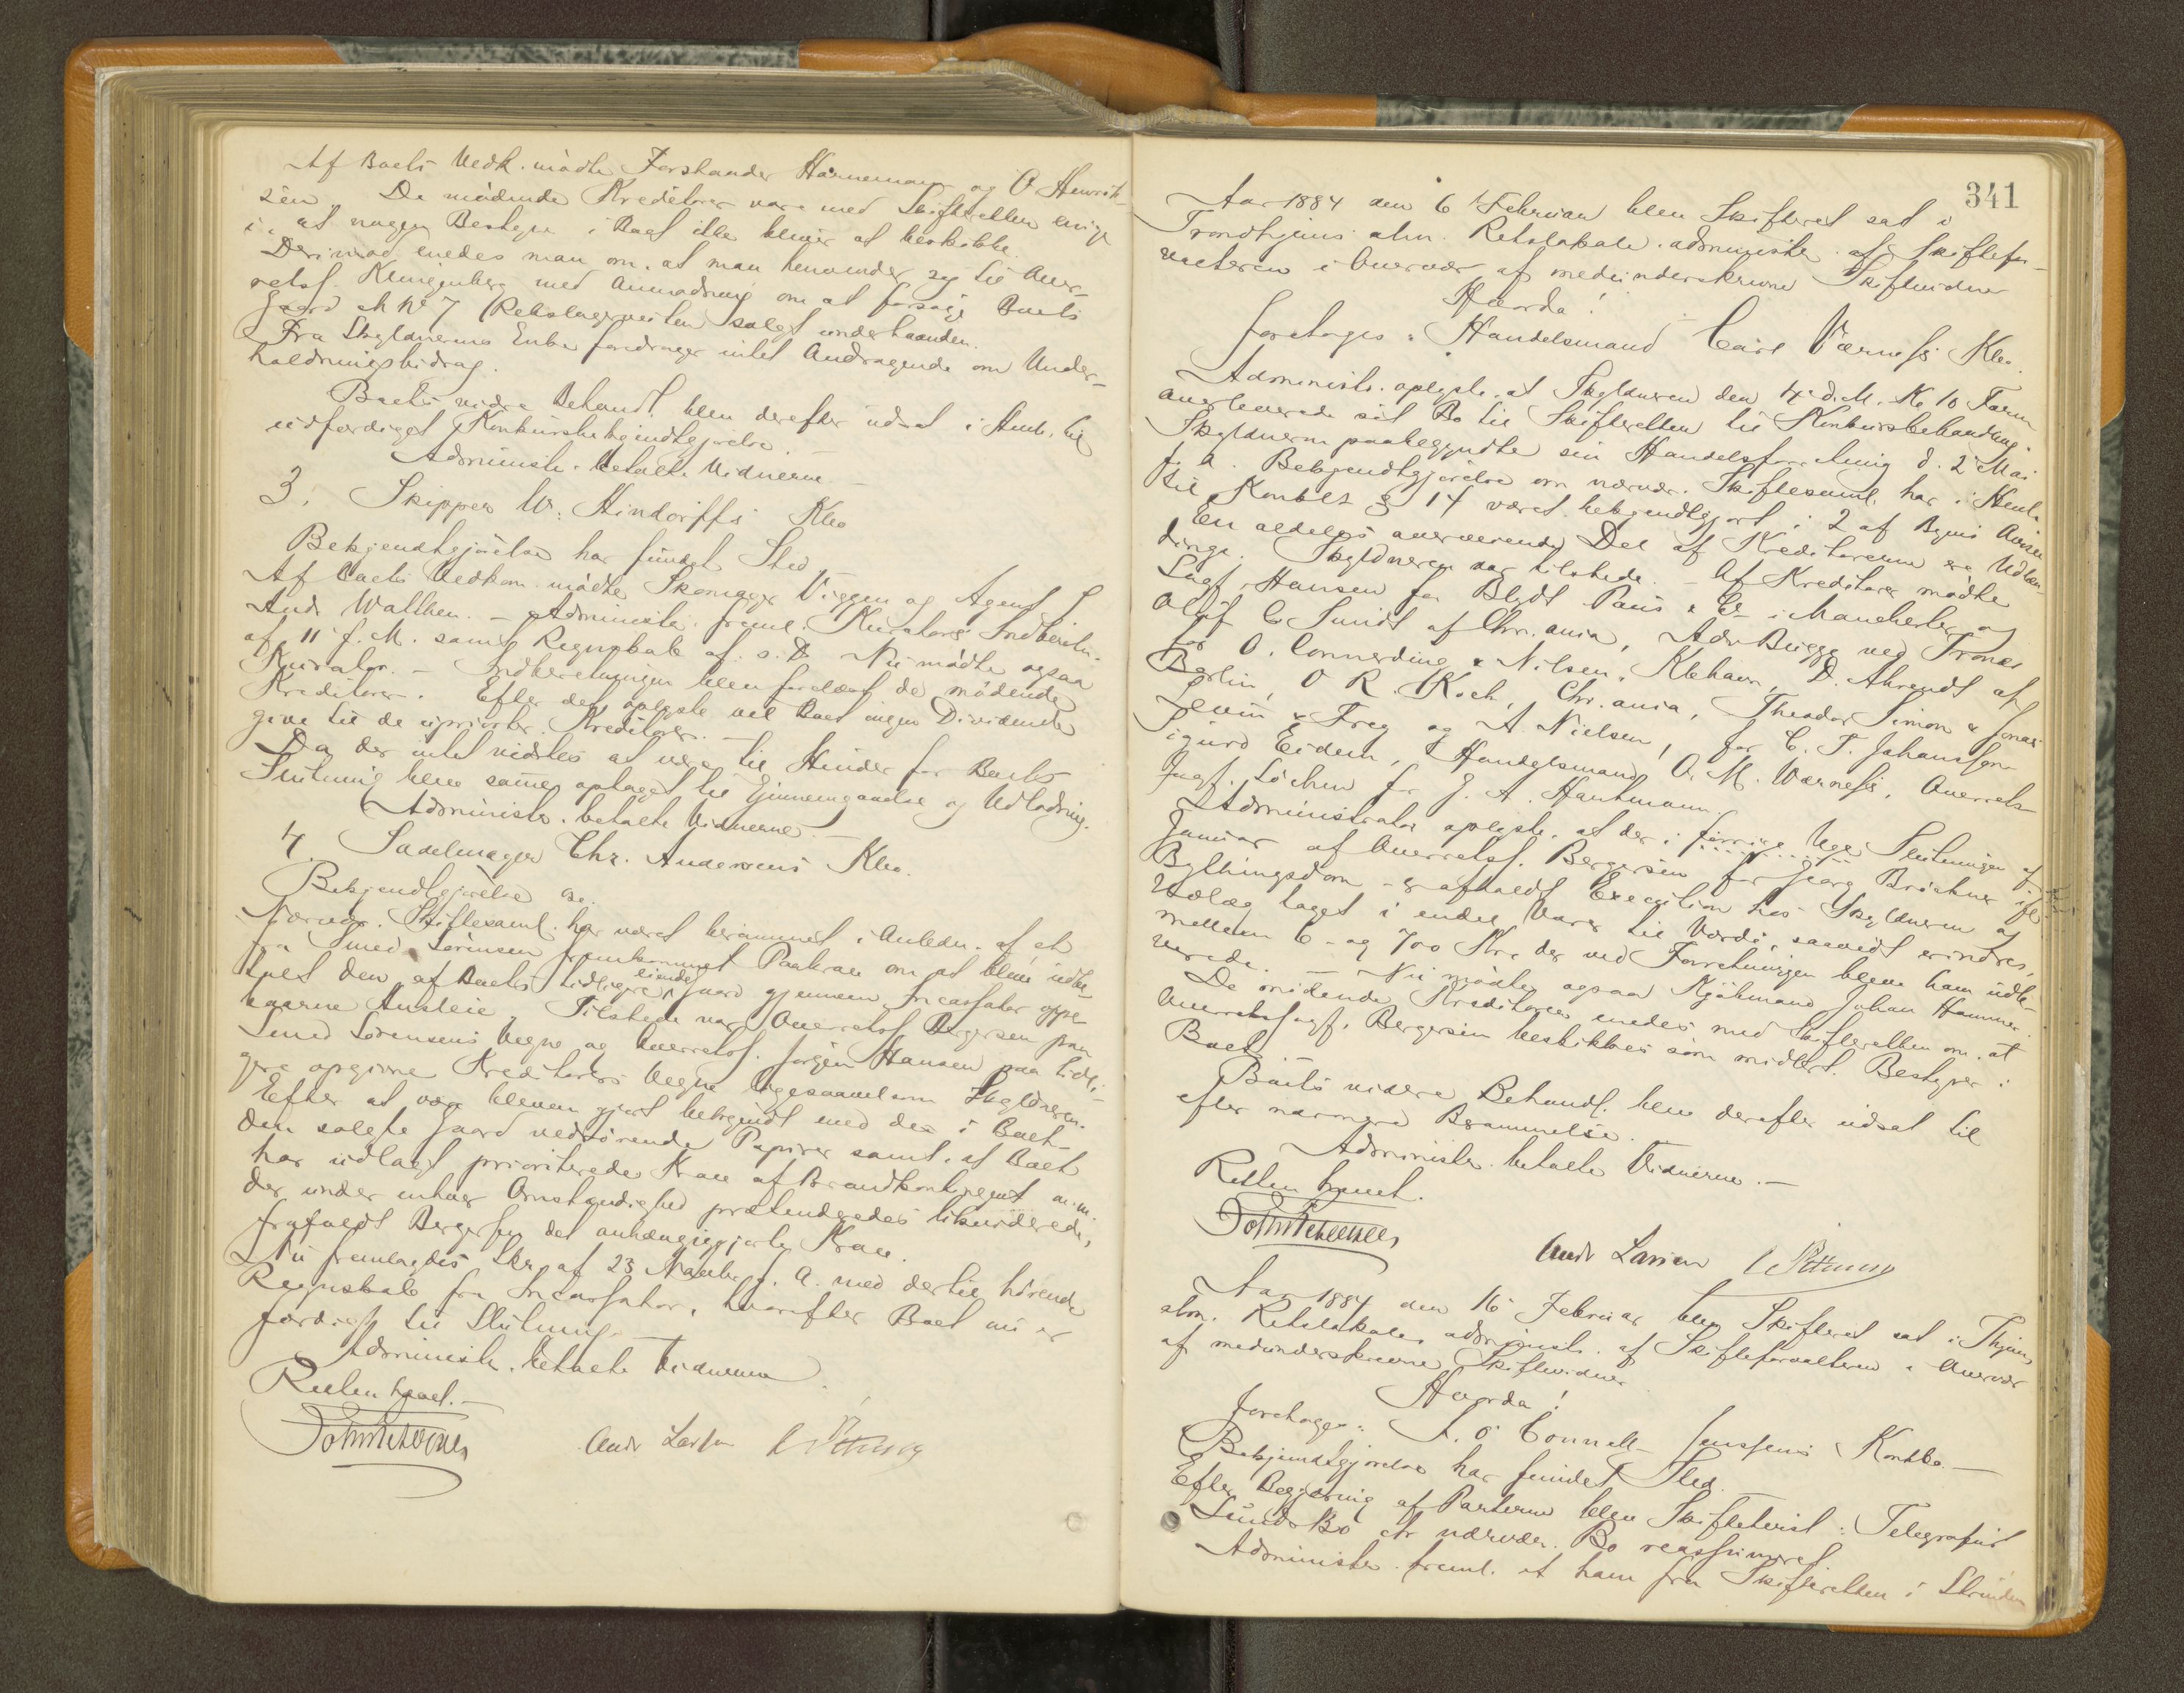 Af Boets Vedk. mødte Forstander Hannemann og O. Henrik-
sen. De mødende Kreditorer vare med Skifteretten enige
i, at nogen Bestyrer i Boet ikke bliver at beskikke.
Derimod enedes man om, at man henvender sig til Over-
retssf. Klingenberg med Anmodning om at forsøge Boets
Gaard M No 7 Rebslagerveiten solgt underhaanden.
Fra Skyldnerens Enke foredrages intet Andragende om Under-
holdningsbidrag.
Boets videre Behandl. blev derefter udsat i Henh. til
udfærdiget Konkursbekjendtgjørelse.
Administr. betalte Vidnerne.
3. Skipper W. Hindorffs Kbo
Bekjendtgjørelse har fundet Sted.
Af Boets Vedkom. mødte Skomager Viggen og Agent
And. Walthen. - Administr. freml. Kurators Indberetn.
af 11 f. M. samt Regnskab af s. D. Nu mødte ogsaa
Kurator. - Indberetningen blev forelæst de mødende
Kreditorer. Efter det oplyste vil Boet ingen Dividende
give til de upriorite Kreditorer. -
Da der intet vidstes at være til Hinder for Boets
Slutning blev samme optaget til Gjennemgaaelse og Udlodning.
Administr. betalte Vidnerne. -
4. Sadelmager Chr. Andersens Kbo.
Bekjendtgjørelse
Nærvær. Skiftesaml. har været berammet i Anledn. af et
fra Smed Sørensen fremkommet Paakrav om at blive udbe-
talt den af Boets tidligere eiende Gaard gjennem Incassator oppe-
baarne Husleie. Tilstede var Overretssf. Bergersen paa
Smed Sørensens Vegne og Overretssf. Jørgen Hansen paa tidli-
gere opgivne Kreditorers Vegne ligesaavelsom Skyldneren.
Efter at være bleven gjort bekjendt med de i Boet
den solgte Gaard vedrørende Papirer samt at Boet
har udlagt prioriterede Krav af Brandkontingent m. m.
der under enhver Omstændighed prætenderedes likviderede,
frafaldt Bergersen det anhængiggjorte Krav.
Nu fremlagdes Skr. af 23 Novbr. f. A. med dertil hørende
Regnskab fra Incassator, hvorefter Boet nu er
færdigt til Slutning.
Administr. betalte Vidnerne
Retten hævet. -
Andr Larsen
341
Aar 1884 den 6 Februar blev Skifteret sat i
Trondhjems alm. Retslokale administr. af Skiftefor-
valteren i Overvær af medunderskrevne Skiftevidner
Hvorda!
foretoges: Handelsmand Carl Værness Kbo.
Administr. oplyste, at Skyldneren den 4 d. M. Kl. 10 Form
overleverede sit Bo til Skifteretten til Konkursbehandling.
Skyldneren paabegyndte sin Handelsforretning d. 2 Mai
f. A. Bekjendtgjørelse om nærvær. Skiftesaml. har i Henh.
til Konkl. § 14 været bekjendtgjort i 2 af Byens Aviser
En aldeles overveiende Del af Kreditorerne ere Udlæn-
dinge. Skyldneren var tilstede. - Af Kreditorer mødte
Sagf. Hansen for Blydt Paus & Co i Manchester og
Oluf C Smidt af Chr.ania, Adv Bugge ved Trones
for O. Connerding & Nilsen, Kbhavn, D. Ahrendt af
Berlin, O R. Koch, Chr.ania, Theodor Simon & Jonas
Levin & Frey og A. Nielsen, for C. T. Johanssen
Sigurd Eidem, Handelsmand O. M. Wærness. Overrets-
sagf. Løchen for J. A. Hartmann.
Administrator oplyste, at der i forrige Uge Slutningen af
Januar af Overretssf. Bergersen for Georg Brochner ifl
Bythingsdom er afholdt Execution hos Skyldneren og
Udlæg taget i endel Varer til Værdi, saavidt erindres,
mellem 6- og 700 Kr. der ved Forretningen blev ham udle-
verede. - Nu mødte ogsaa Kjøbmand Johan Hammer.
De mødende Kreditorer enedes med Skifteretten om, at
Overretssagf. Bergersen beskikkes som midlert. Bestyrer i
Boet.
Boets videre Behandl. blev derefter udsat til
efter nærmere Berammelse.
Administr. betalte Vidnerne. -
Retten hævet.
Andr Larsen
Aar 1884 den 16 Februar blev Skifteret sat i Thjems
alm. Retslokale administr. af Skifteforvalteren i Overvær
af medunderskrevne Skiftevidner
Hvorda!
foretoges: A. O' Connell Jenssens Konkbo. -
Bekjendtgjørelse har fundet Sted.
Efter Begjæring af Parterne blev Skiftetvist: Telegrafist
Lunds Bo ctr nærvær. Bo reassumeret.
Administr. freml. et ham fra Skifteretten i Strinden